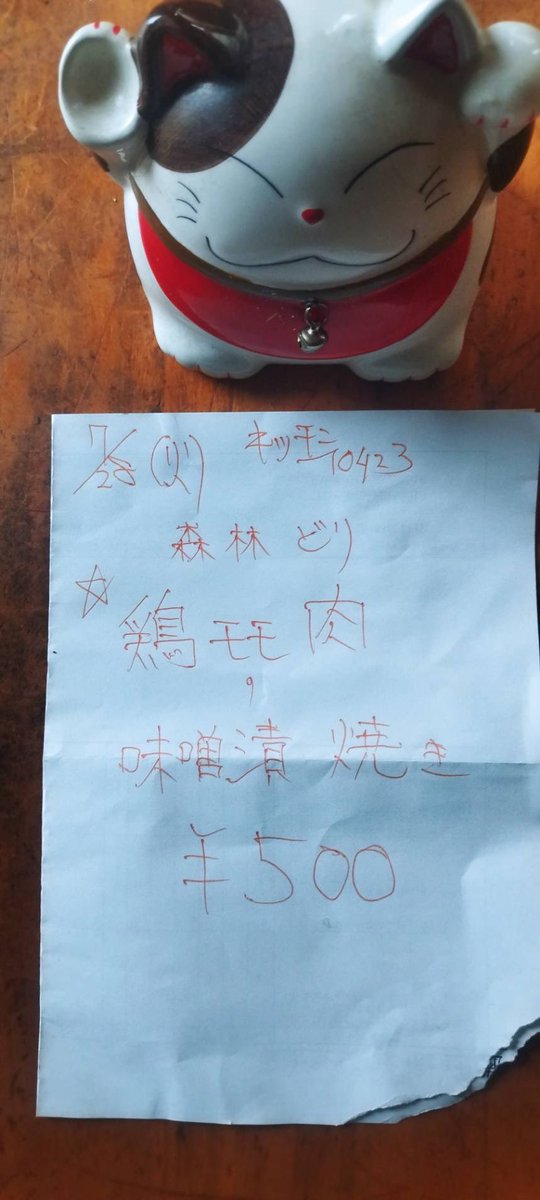 7/28(火) キッチン10423
森林どり
☆鶏モモ肉
の
味噌漬焼き
¥500